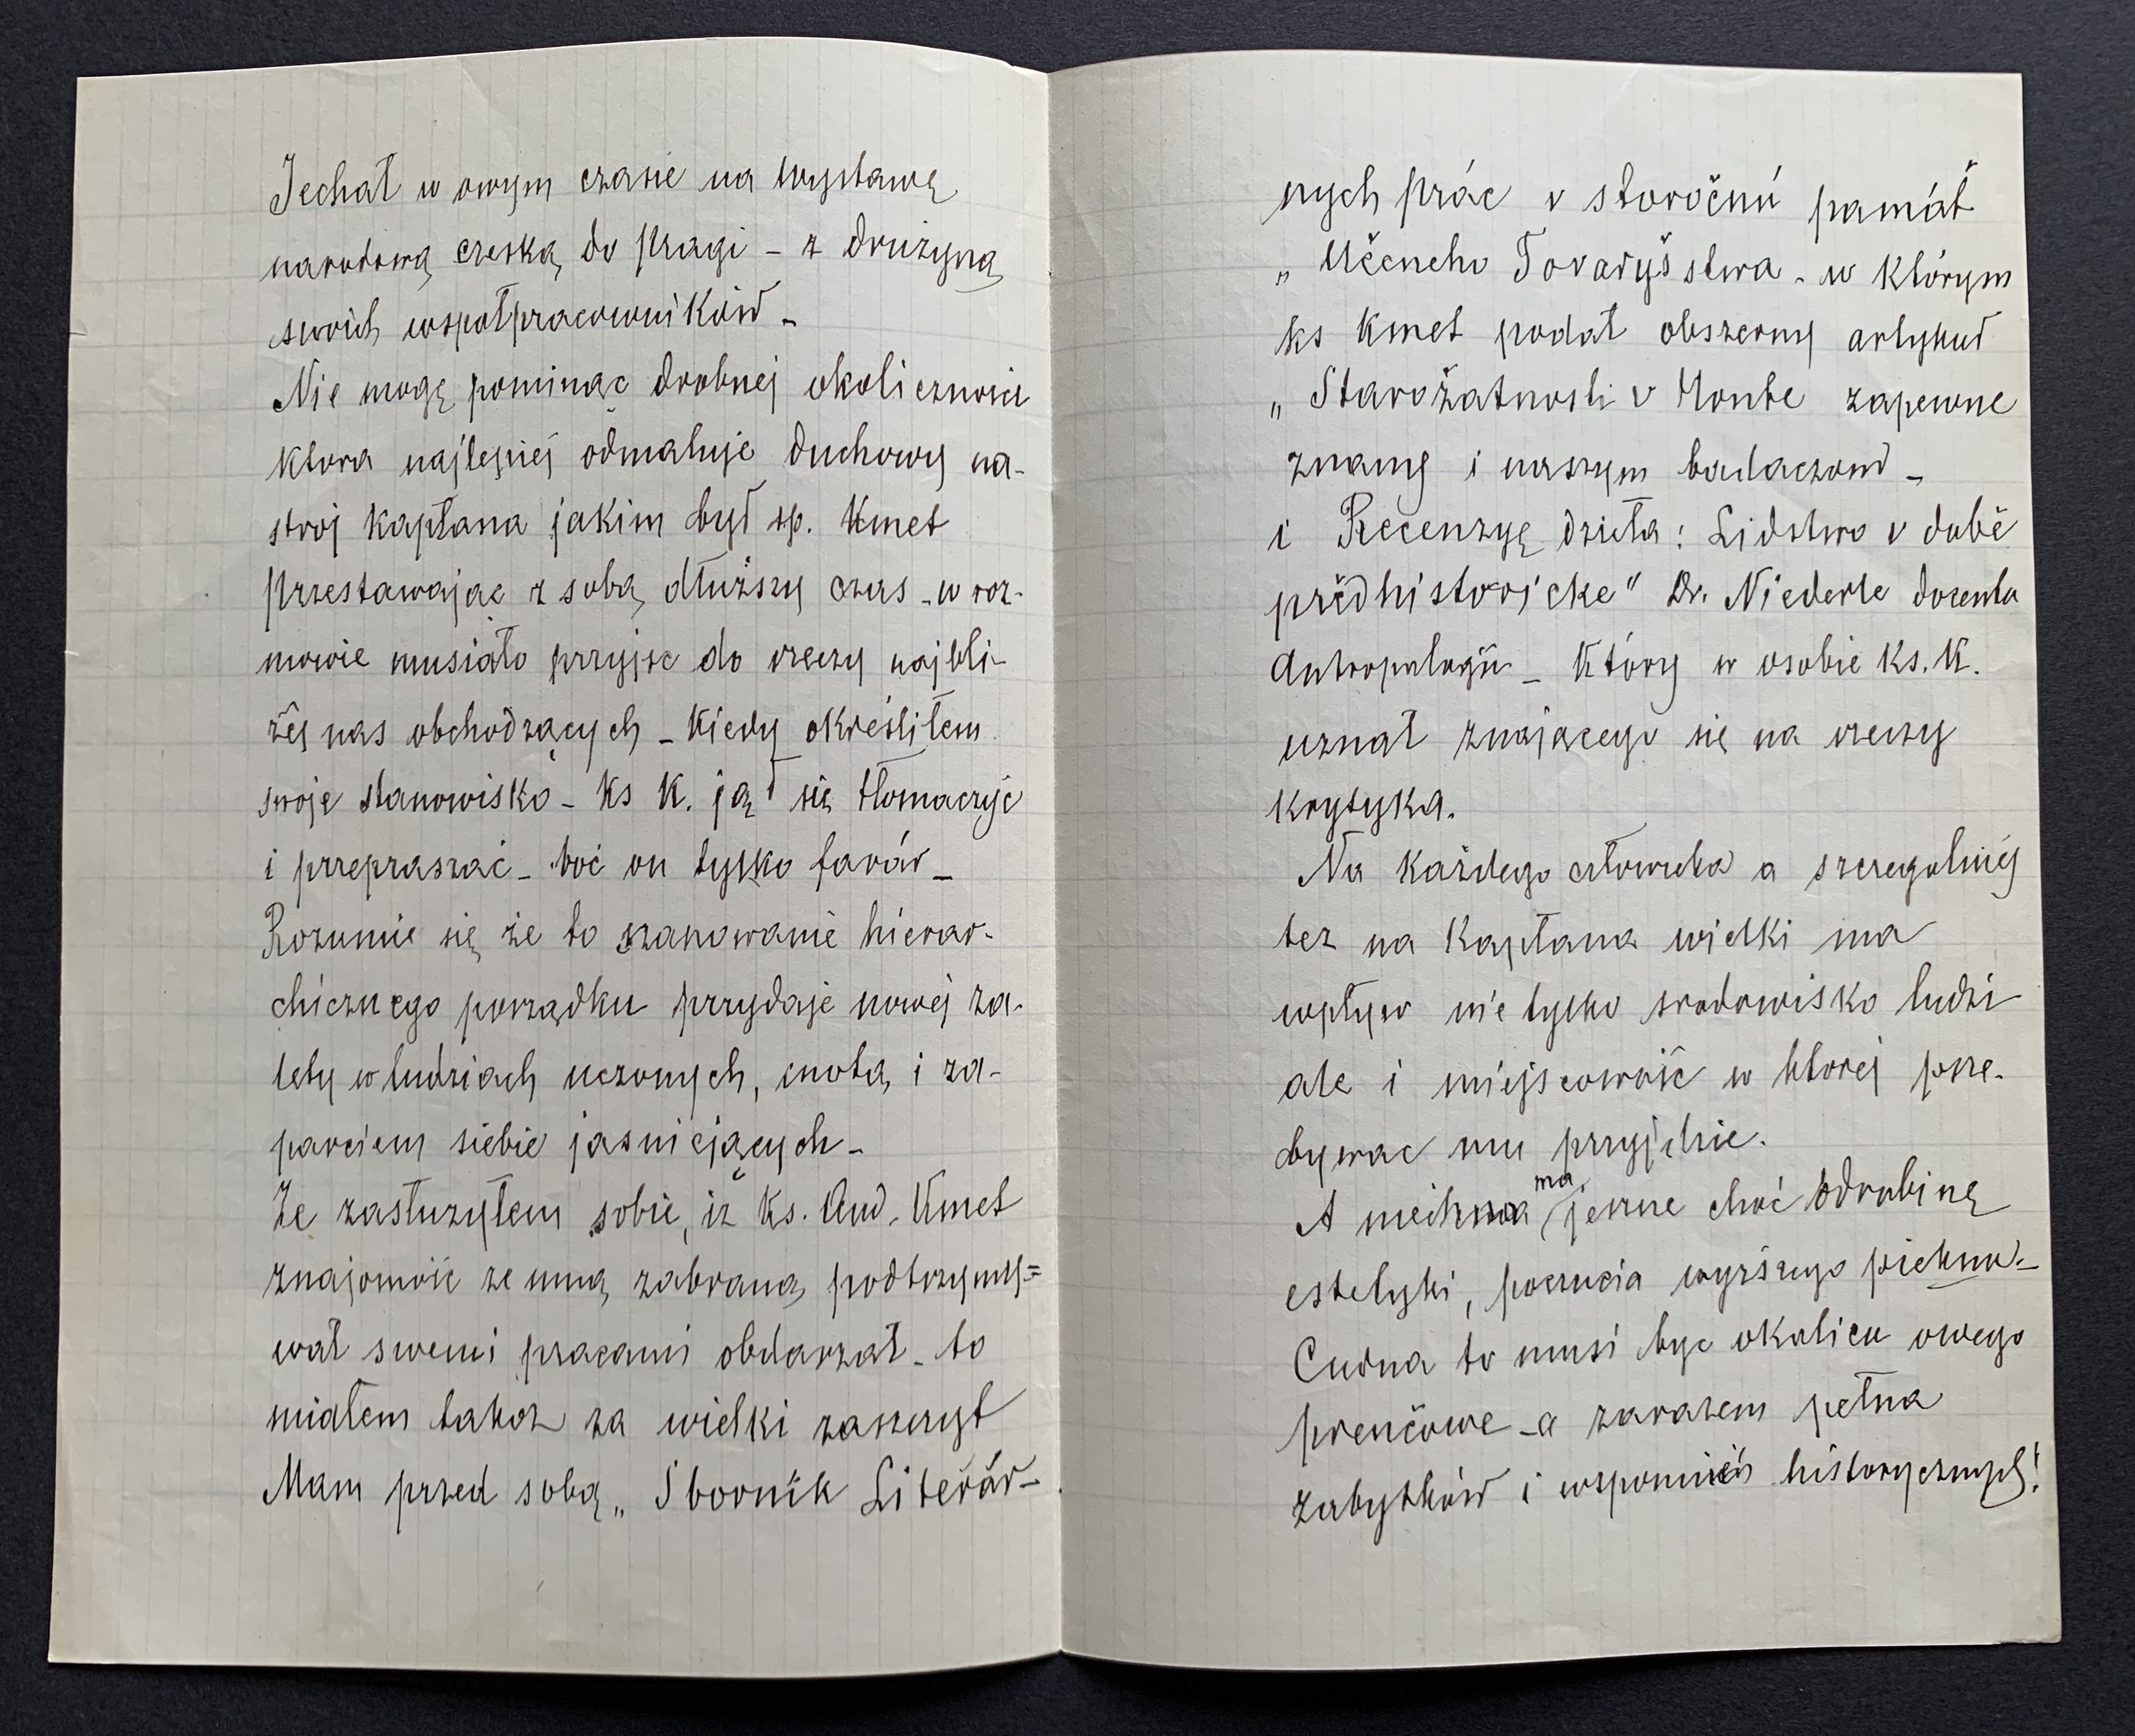 Jechał w owym czasie na wystawę
narodową czeską do Pragi – z drużyną
swoich współpracowników –
Nie mogę pominąc drobnej okoliczności
ktora najlepiej odmaluje duchowy na-
stroj kapłana jakim był sp. Kmet
Przestawając z sobą dłuższy czas – w roz-
mowie musiało przyjsc do rzeczy najbli-
żéj nas obchodzących – Kiedy określiłem
swoje stanowisko – ks K. jął się tłomaczyć
i przepraszać – boć on tylko farár –
Rozumie się że to szanowanie hierar-
chicznego porządku przydaje nowej za-
lety w ludziach uczonych, cnotą i za-
parciem siebie jasniejących –
Że zasłużyłem sobie, iż ks. And. Kmet
znajomość ze mną zabraną podtrzymy=
wał swemi pracami obdarzał – to
miałem takoż za wielki zaszczyt
Mam przed sobą „Sbornik Literár-
nych prác v storočnú pamät
„Učeneho Tovaryšstva – w którym
ks Kmet podał obszerny artykuł
„Starožatnosti v Honte zapewne
znany i naszym badaczom –
i Recenzyę dzieła: Lidstwo v době
předhistorické" Dr. Niederle docenta
Antropologii – Który w osobie ks. K.
uznał znającego się na rzeczy
krytyka.
Na każdego człowieka a szczegolniéj
tez na kapłana wielki ma
wpływ nie tylko srodowisko ludzi
ale i miejscowość w ktorej prze-
bywac mu przyjdzie.
A niech ma jeszcze choć odrobinę
estetyki, poczucia wyższego piękna –
Cudna to musi byc okolica owego
prenčowe – a zarazem pełna
zabytków i wspomnień historycznych!